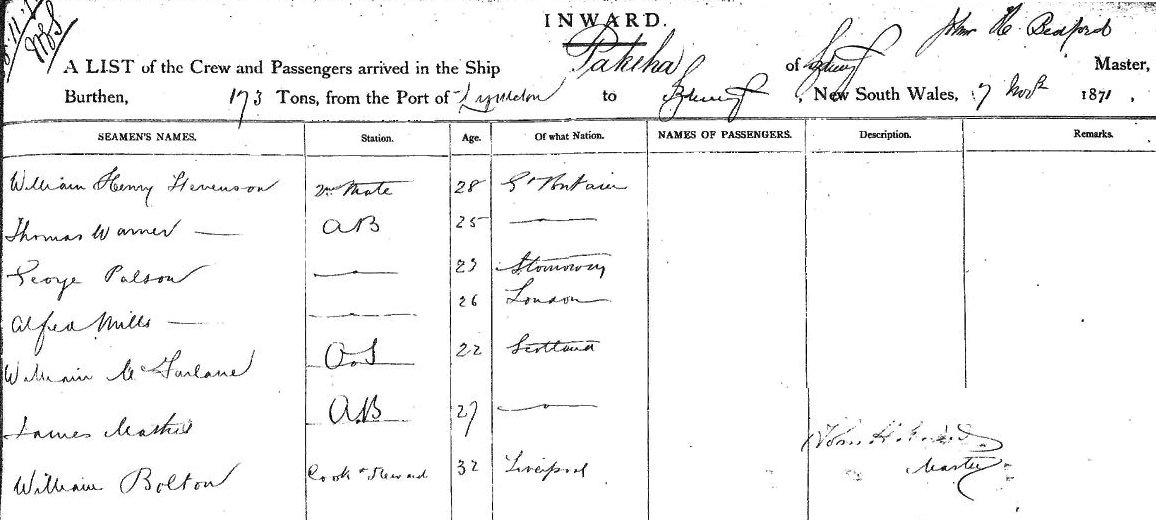 INWARD.
John H. Bedford
A LIST of the Crew and Passengers arrived in the Ship Pakeha of Sydney Master,
Burthen, 173 Tons, from the Port of Lyttelton to Sydney, New South Wales, 7 Novr 1871,
SEAMEN'S NAMES. Station. Age. Of what Nation. NAMES OF PASSENGERS. Description. Remarks.
William Henry Stevenson Mate 28 Gt Britain
Thomas Warner — AB 25 —
George Palson — 23 Stornoway
Alfred Mills — — 26 London
William McFarlane OS 22 Scotland
James AB 27 —
William Bolton Cook & Steward 32 Liverpool
John H.
Master